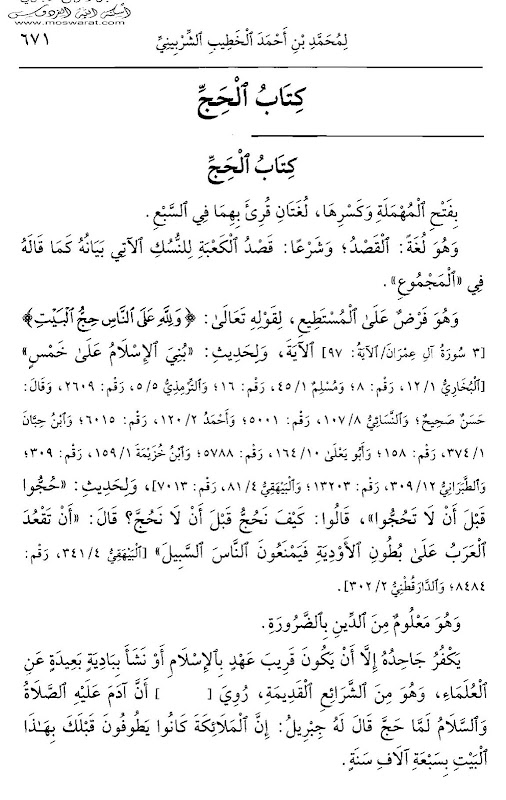 www.moswarat.com
٦٧١ لِمُحَمَّدِ بْنِ أَحْمَدَ ٱلْخَطِيبِ ٱلشِّرْبِينِيِّ
كِتَابُ ٱلْحَجِّ
كِتَابُ ٱلْحَجِّ
بِفَتْحِ ٱلْمُهْمَلَةِ وَكَسْرِهَا، لُغَتَانِ قُرِئَ بِهِمَا فِي ٱلسَّبْعِ.
وَهُوَ لُغَةً: ٱلْقَصْدُ؛ وَشَرْعًا: قَصْدُ ٱلْكَعْبَةِ لِلنُّسُكِ ٱلْآتِي بَيَانُهُ كَمَا قَالَهُ
فِي «ٱلْمَجْمُوعِ».
وَهُوَ فَرْضٌ عَلَىٰ ٱلْمُسْتَطِيعِ، لِقَوْلِهِ تَعَالَىٰ: ﴿وَلِلَّهِ عَلَى ٱلنَّاسِ حِجُّ ٱلْبَيْتِ﴾
[٣ سُورَةُ آلِ عِمْرَانَ/ٱلْآيَةُ: ٩٧] ٱلْآيَةَ، وَلِحَدِيثِ: «بُنِيَ ٱلْإِسْلَامُ عَلَىٰ خَمْسٍ»
[ٱلْبُخَارِيُّ ١٢/١، رَقْمُ: ٨؛ وَمُسْلِمٌ ٤٥/١، رَقْمُ: ١٦؛ وَٱلتِّرْمِذِيُّ ٥/٥، رَقْمُ: ٢٦٠٩، وَقَالَ:
حَسَنٌ صَحِيحٌ؛ وَٱلنَّسَائِيُّ ١٠٧/٨، رَقْمُ: ٥٠٠١؛ وَأَحْمَدُ ١٢٠/٢، رَقْمُ: ٦٠١٥؛ وَٱبْنُ حِبَّانَ
٣٧٤/١، رَقْمُ: ١٥٨؛ وَأَبُو يَعْلَىٰ ١٦٤/١٠، رَقْمُ: ٥٧٨٨؛ وَٱبْنُ خُزَيْمَةَ ١٥٩/١، رَقْمُ: ٣٠٩؛
وَٱلطَّبَرَانِيُّ ٣٠٩/١٢، رَقْمُ: ١٣٢٠٣؛ وَٱلْبَيْهَقِيُّ ٨١/٤، رَقْمُ: ٧٠١٣]، وَلِحَدِيثِ: «حُجُّوا
قَبْلَ أَنْ لَا تَحُجُّوا»، قَالُوا: كَيْفَ نَحُجُّ قَبْلَ أَنْ لَا نَحُجَّ؟ قَالَ: «أَنْ تَقْعُدَ
ٱلْعَرَبُ عَلَىٰ بُطُونِ ٱلْأَوْدِيَةِ فَيَمْنَعُونَ ٱلنَّاسَ ٱلسَّبِيلَ» [ٱلْبَيْهَقِيُّ ٣٤١/٤، رَقْمُ:
٨٤٨٤؛ وَٱلدَّارَقُطْنِيُّ ٣٠٢/٢].
وَهُوَ مَعْلُومٌ مِنَ ٱلدِّينِ بِٱلضَّرُورَةِ.
يَكْفُرُ جَاحِدُهُ إِلَّا أَنْ يَكُونَ قَرِيبَ عَهْدٍ بِٱلْإِسْلَامِ أَوْ نَشَأَ بِبَادِيَةٍ بَعِيدَةٍ عَنِ
ٱلْعُلَمَاءِ، وَهُوَ مِنَ ٱلشَّرَائِعِ ٱلْقَدِيمَةِ، رُوِيَ [ ] أَنَّ آدَمَ عَلَيْهِ ٱلصَّلَاةُ
وَٱلسَّلَامُ لَمَّا حَجَّ قَالَ لَهُ جِبْرِيلُ: إِنَّ ٱلْمَلَائِكَةَ كَانُوا يَطُوفُونَ قَبْلَكَ بِهَٰذَا
ٱلْبَيْتِ بِسَبْعَةِ آلَافِ سَنَةٍ.